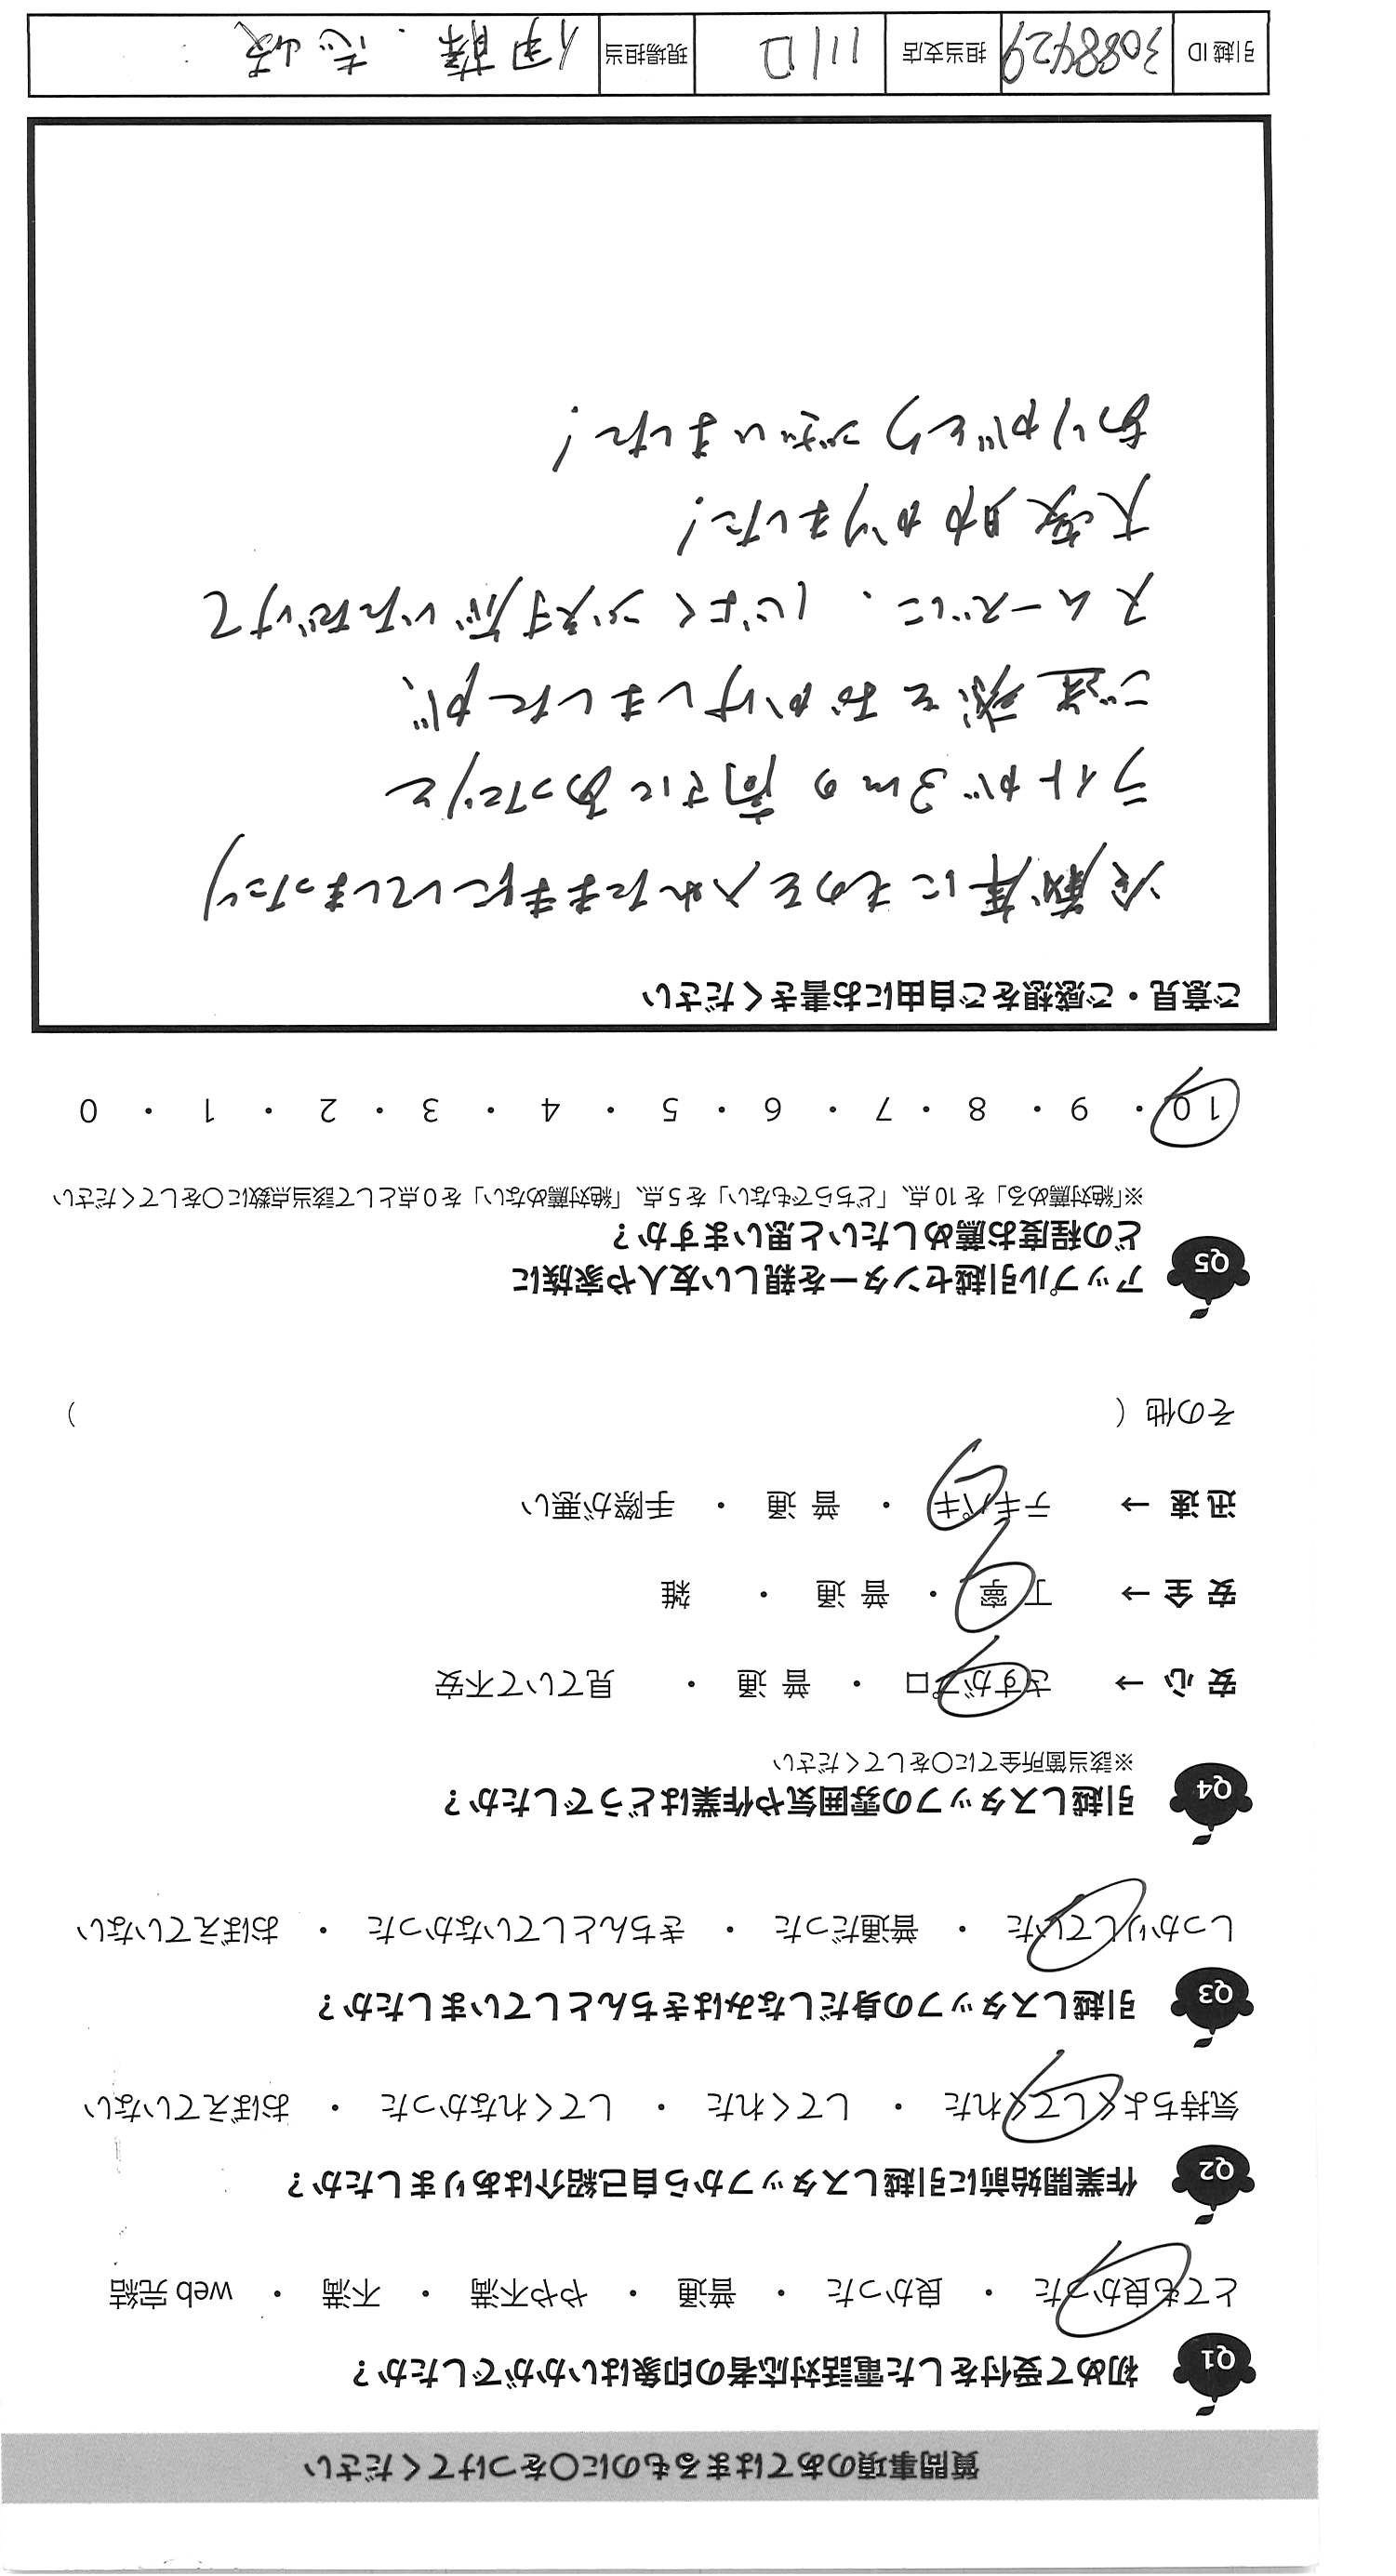 質問事項のあてはまるものに〇をつけてください
Q1 初めて受付をした電話対応者の印象はいかがでしたか？
とても良かった ・ 良かった ・ 普通 ・ やや不満 ・ 不満 ・ web 完結
Q2 作業開始前に引越しスタッフから自己紹介はありましたか？
気持ちよくしてくれた ・ してくれた ・ してくれなかった ・ おぼえていない
Q3 引越しスタッフの身だしなみはきちんとしていましたか？
しっかりしていた ・ 普通だった ・ きちんとしていなかった ・ おぼえていない
Q4 引越しスタッフの雰囲気や作業はどうでしたか？
※該当箇所全てに〇をしてください
安 心 → さすがプロ ・ 普 通 ・ 見ていて不安
安 全 → 丁 寧 ・ 普 通 ・ 雑
迅 速 → テキパキ ・ 普 通 ・ 手際が悪い
その他（ ）
Q5 アップル引越センターを親しい友人や家族に
どの程度お薦めしたいと思いますか？
※「絶対薦める」を 10 点、「どちらでもない」を 5 点、「絶対薦めない」を 0 点として該当点数に〇をしてください
10 ・ 9 ・ 8 ・ 7 ・ 6 ・ 5 ・ 4 ・ 3 ・ 2 ・ 1 ・ 0
ご意見・ご感想をご自由にお書きください
冷蔵庫にものを入れたままにしてしまったり
ライトが3mの高さにあったりと
ご迷惑をおかけしましたが、
スムーズに、 いただけて
大変助かりました!
ありがとうございました!
引越 ID 3088429 担当支店 川口 現場担当 伊藤